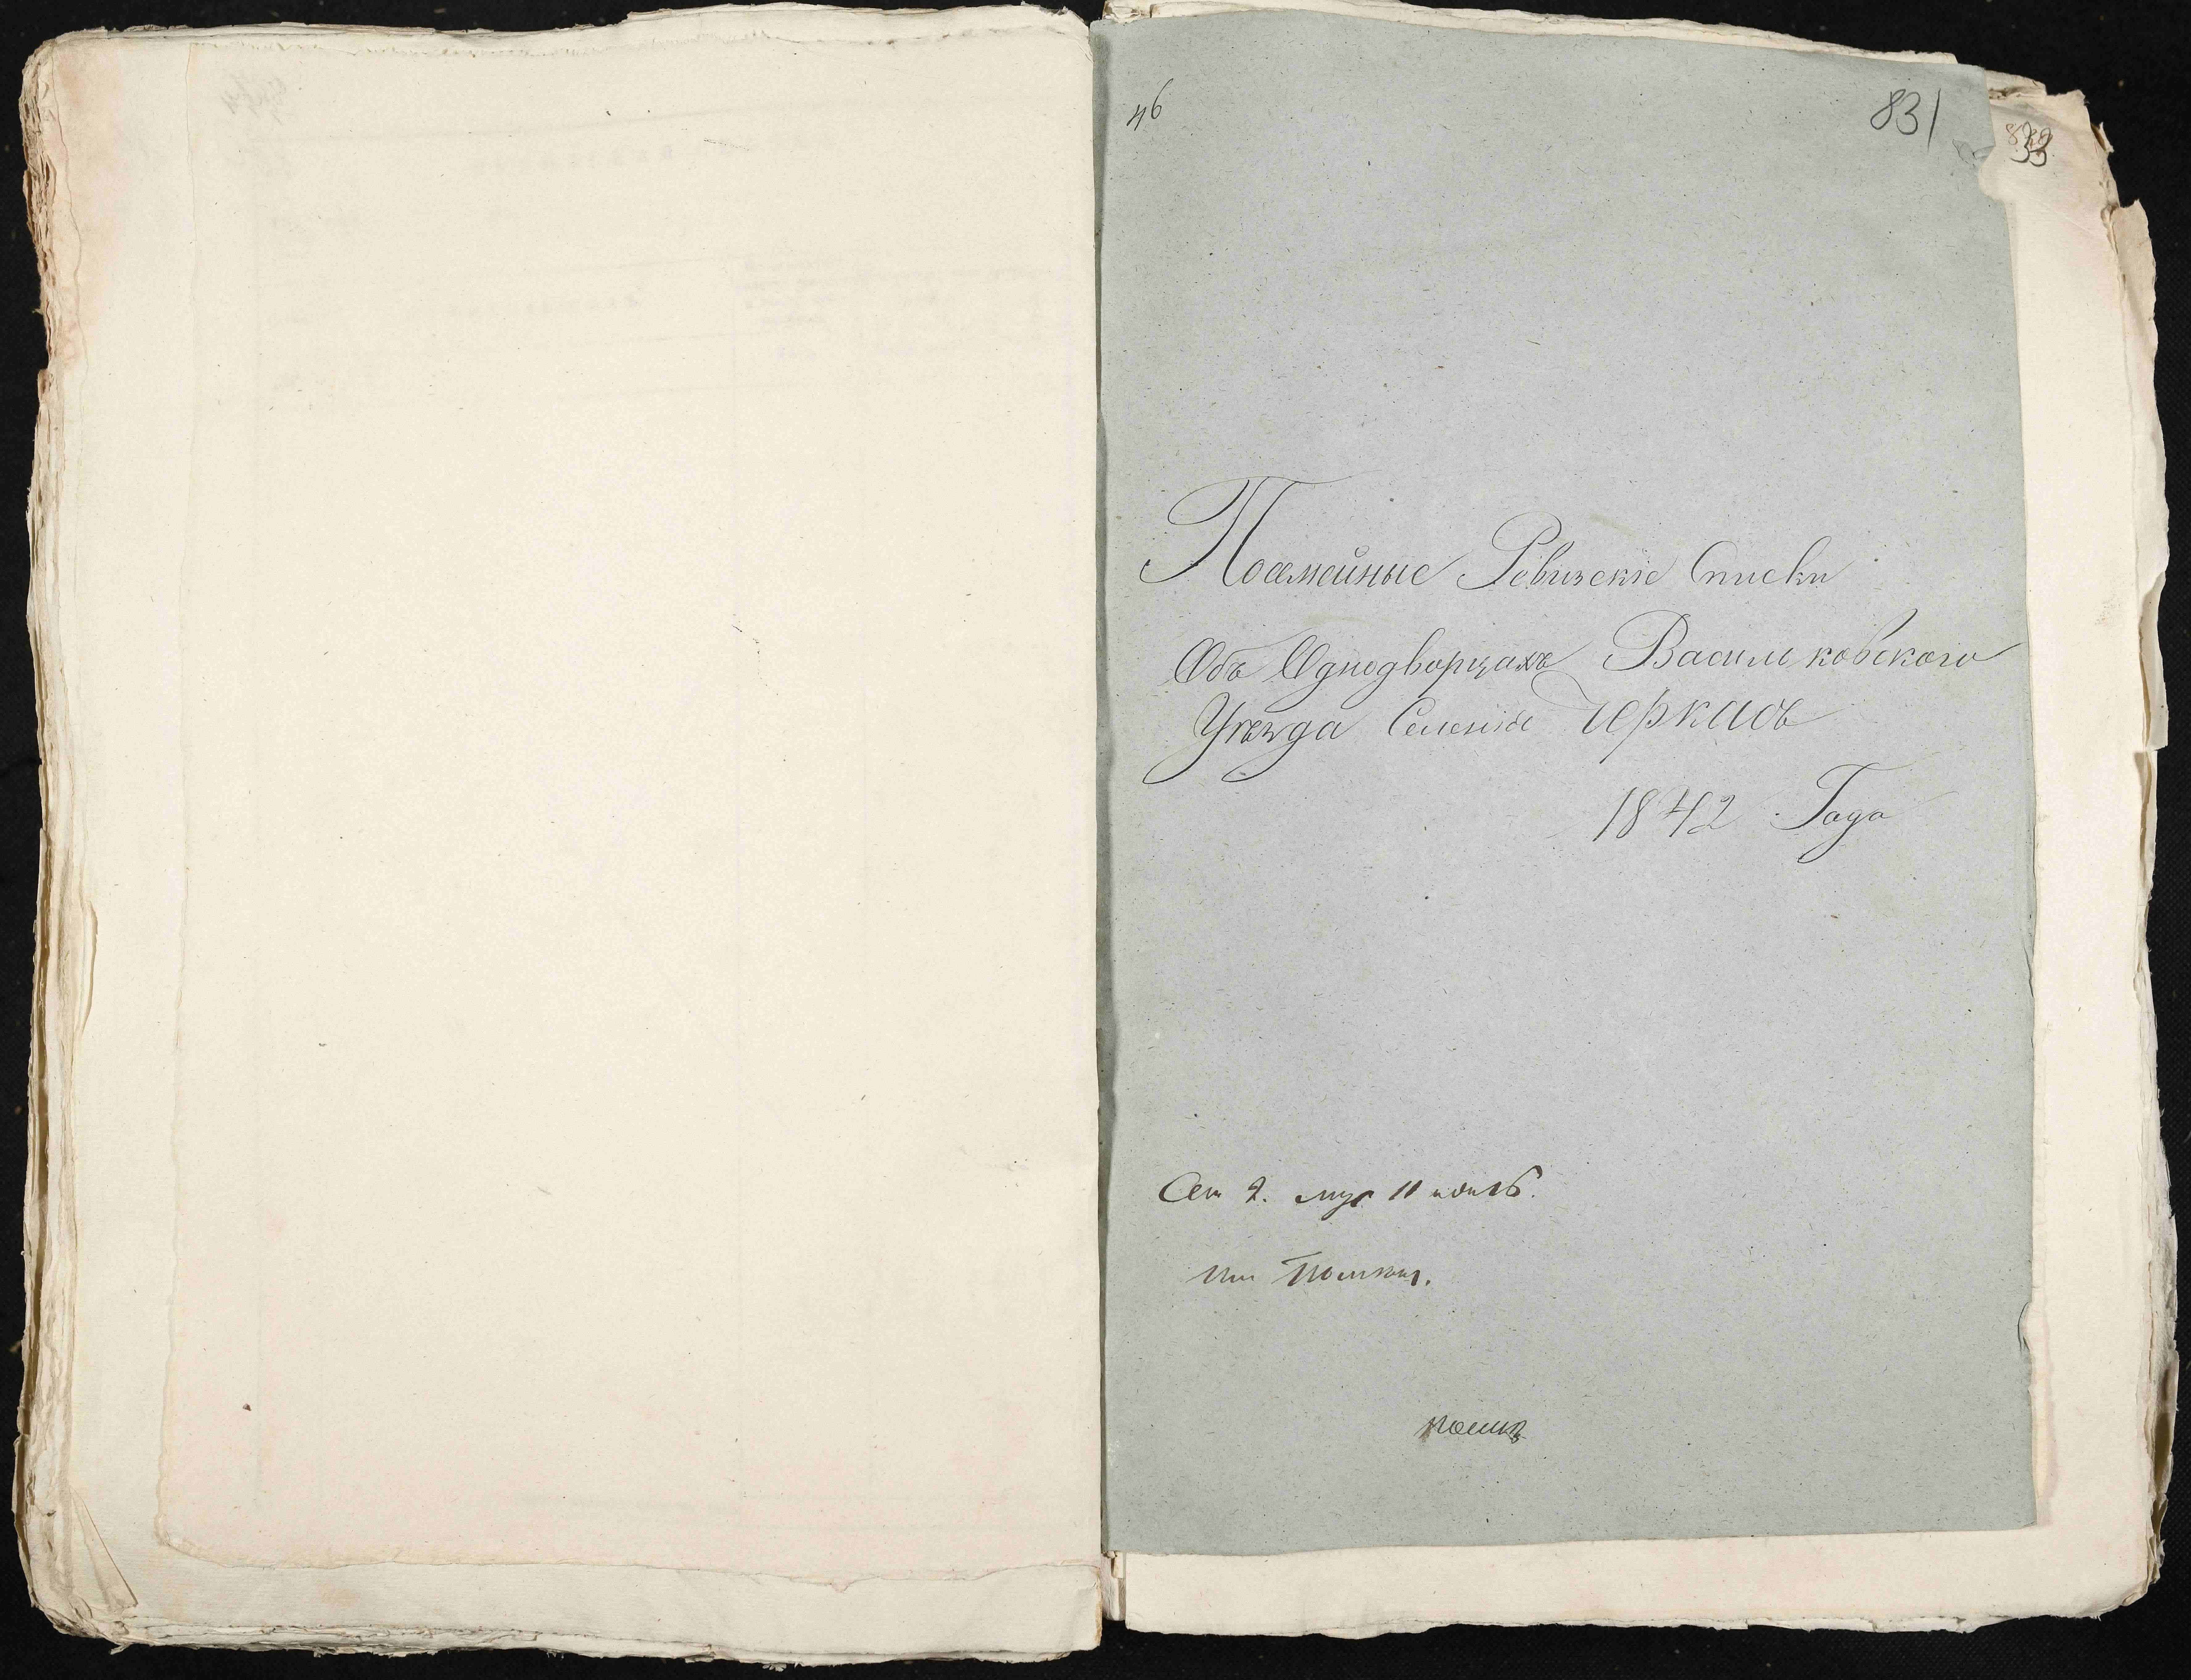 46
831
Посемейные Ревизскіе Списки
Объ Однодворцахъ Васильковскаго
Уѣзда Селеніе Черкасъ
1842 Года
Сем 2. муж 11